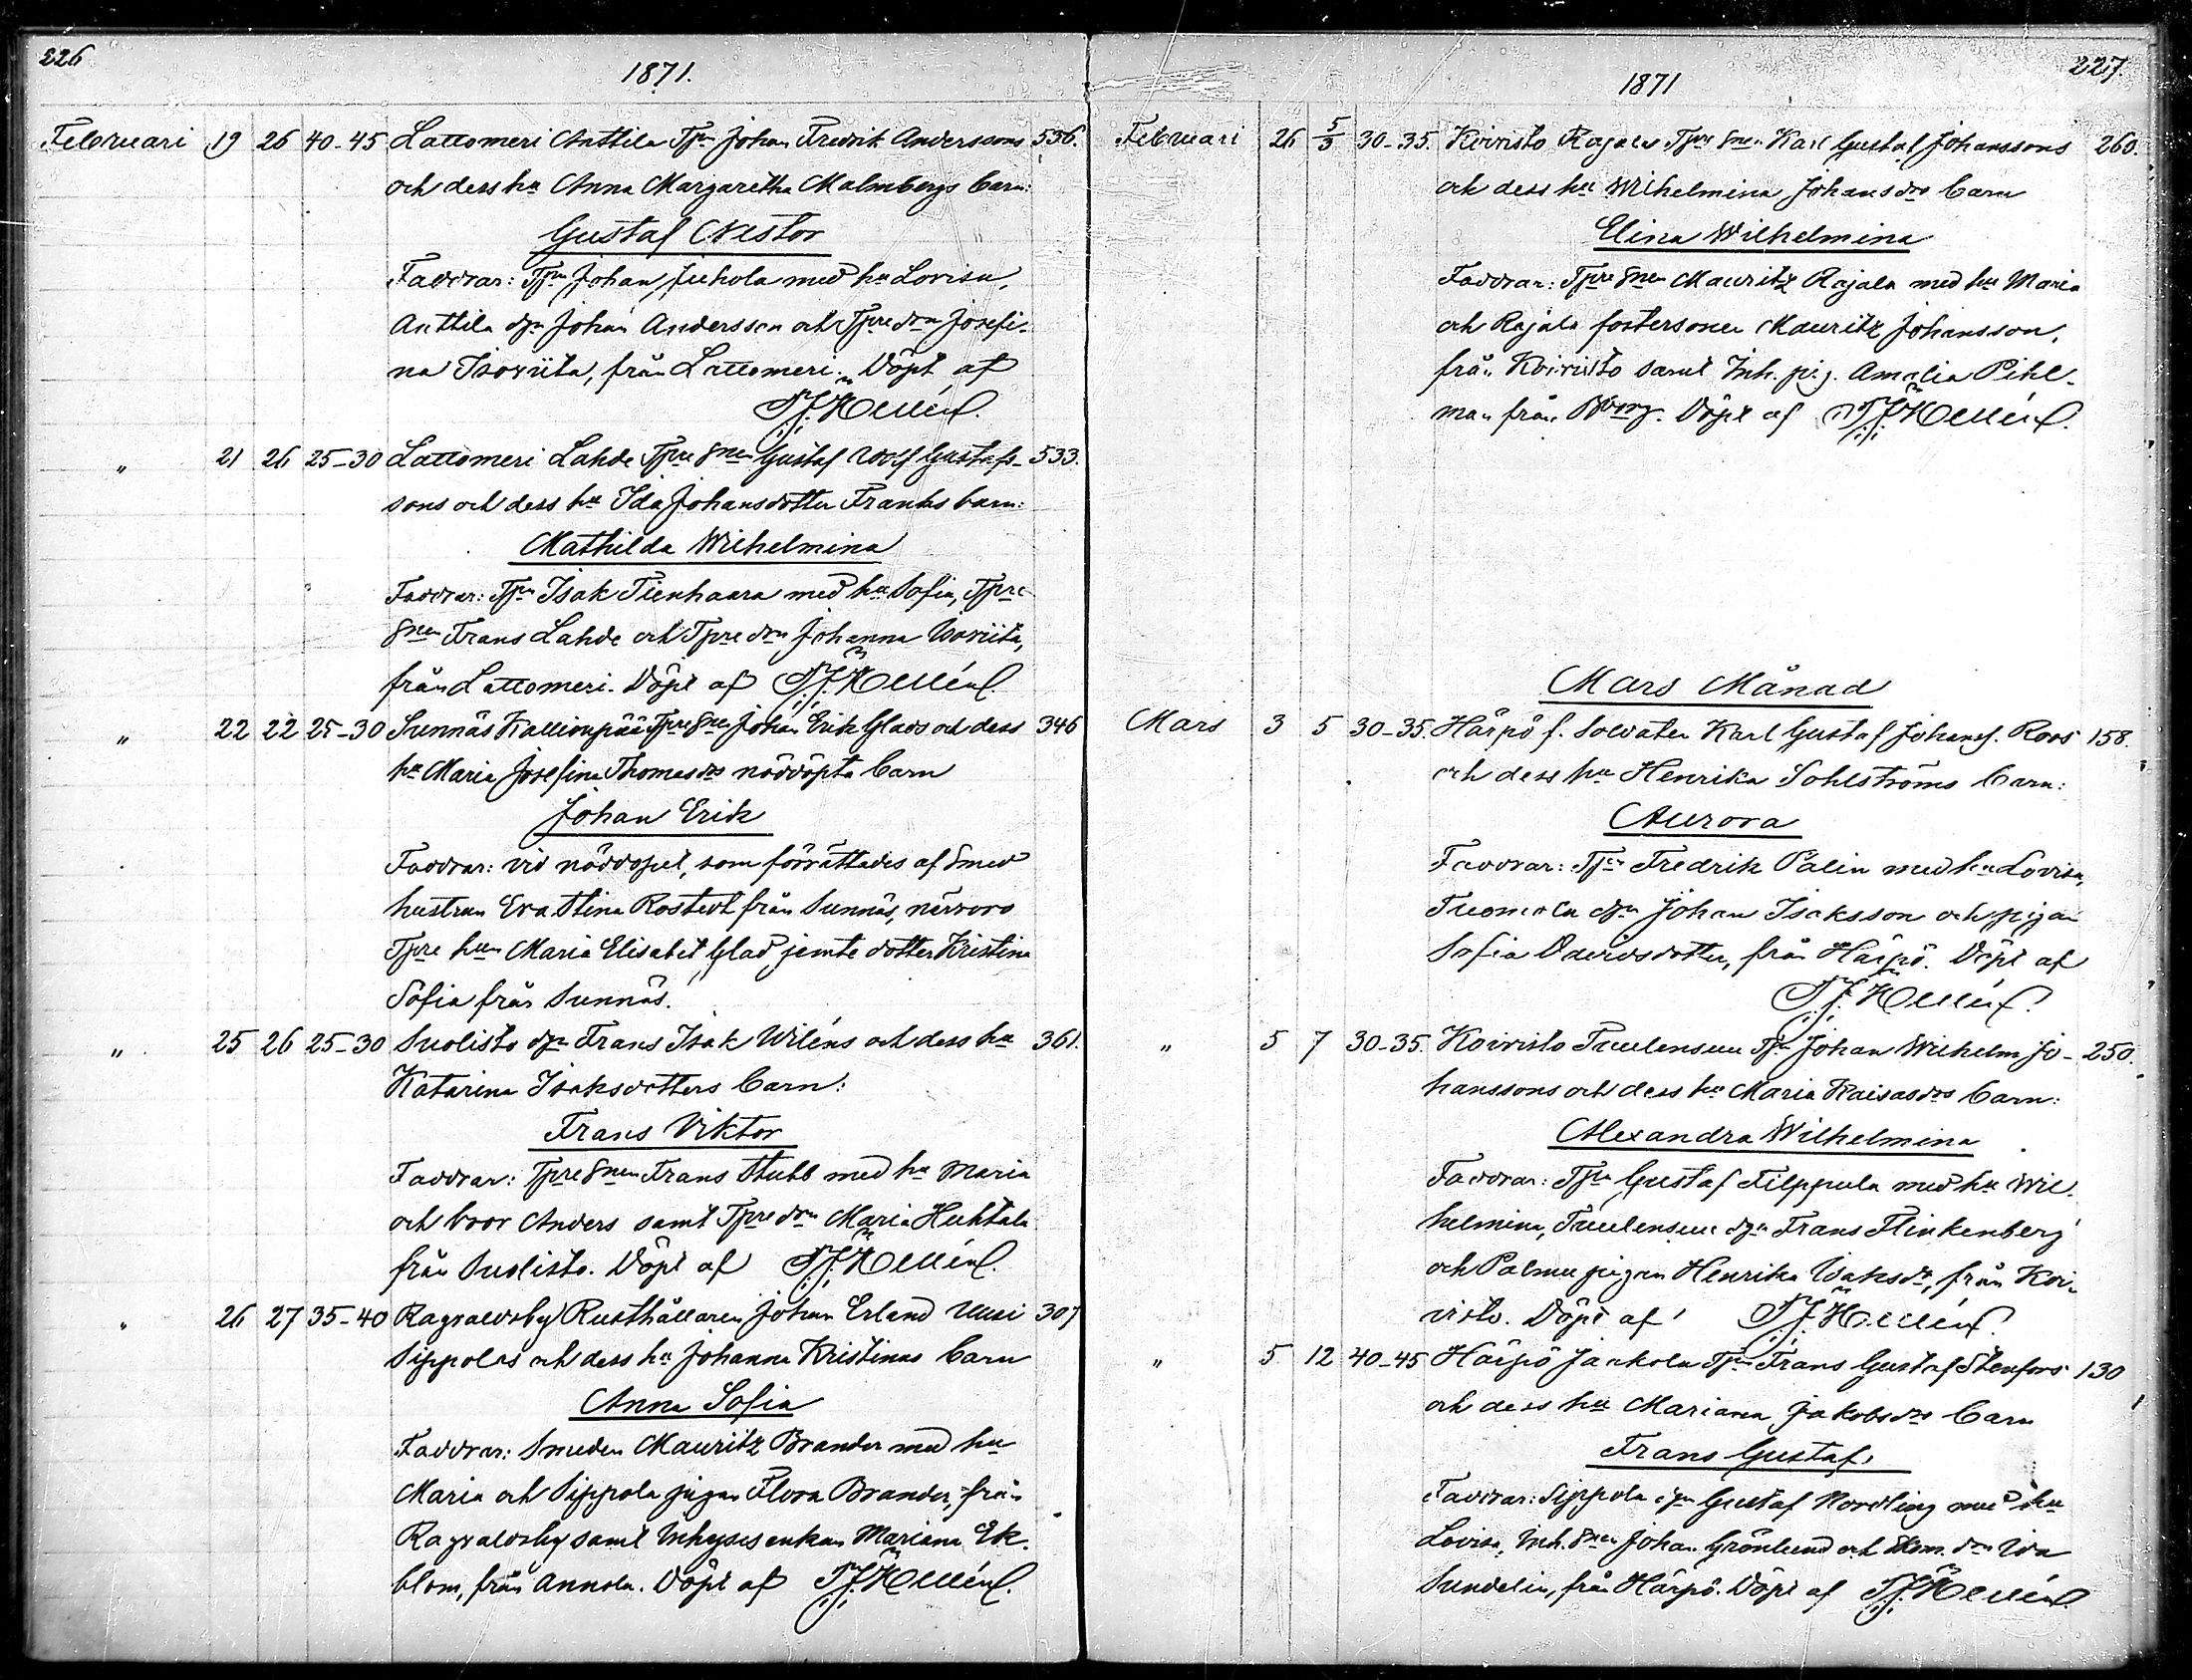 226
1871.
Februari 19 26 40-45 Lattomeri Anttila Tpn Johan Fredrik Anderssons 556.
och dess hu Anna Margaretha Malmbergs barn:
Gustaf Nestor
Faddrar: Tpn Johan Juhola med hu Lovisa,
Anttila dgn Johan Andersson och Tpre drn Josefi-
na Isoviita, från Lattomeri. Döpt af
Hellén.
" 21 26 25-30 Lattomeri Lahde Tpre snen Gustaf Adolf Gustafs- 533.
sons och dess hu Ida Johansdotter Franks barn:
Mathilda Wilhelmina
Faddrar: Tpn Isak Tienhaara med hu Sofia, Tpre
snen Frans Lahde och Tpre drn Johanna Isoviita,
från Lattomeri. Döpt af Hellén.
" 22 22 25-30 Sunnäs Kallionpää Tpre snen Johan Erik Glads och dess 346
hu Maria Josefina Thomasdrs nöddöpta barn
Johan Erik
Faddrar: vid nöddopet, som förrättades af smed
hustrun Eva Stina Rostedt från Sunnäs, närvoro
Tpre hun Maria Elisabet Glad jemte dotter Kristina
Sofia från Sunnäs.
" 25 26 25-30 Suolisto dgn Frans Isak Wiléns och dess hu 361.
Katarina Isaksdotters barn:
Frans Viktor
Faddrar: Tpre snen Frans Stubb med hu Maria
och bror Anders samt Tpre drn Maria Huhtala
från Suolisto. Döpt af Hellén.
" 26 27 35-40 Ragvaldsby Rusthållaren Johan Erland Uusi 307
Sippolas och dess hu Johanna Kristinas barn
Anna Sofia
Faddrar: Smeden Mauritz Brander med hu
Maria och Sippola pigan Flora Brander, från
Ragvaldsby samt Inhyses enkan Mariana Ek-
blom, från Annola. Döpt af Hellén.
227.
1871
Februari 26 5/3 30-35. Koivisto Rajala Tpre snen Karl Gustaf Johanssons 260.
och dess hu Wilhelmina Johansdrs barn
Elina Wilhelmina
Faddrar: Tpre snen Mauritz Rajala med hu Maria
och Rajala fostersonen Mauritz Johansson,
från Koivisto samt Inh. pig. Amalia Pihl-
man från Bborg. Döpt af Hellén.
Mars Månad
Mars 3 5 30-35. Härpö f. Soldaten Karl Gustaf Johanss. Roos 158.
och dess hu Henrika Sohlströms barn:
Aurora
Faddrar: Tpn Fredrik Palin med hu Lovisa,
Tuomola dgn Johan Isaksson och pigan
Sofia Davidsdotter, från Härpö. Döpt af
Hellén.
" 5 7 30-35. Koivisto Tuulensuu Tpn Johan Wilhelm Jo- 250.
hanssons och dess hu Maria Kaisasdrs barn:
Alexandra Wilhelmina
Faddrar: Tpn Gustaf Filppula med hu Wil-
helmina, Tuulensuu dgn Frans Flinkenberg
och Palmu pigan Henrika Isaksdr, från Koi-
visto. Döpt af Hellén.
" 5 12 40-45 Härpö Jaakola Tpn Frans Gustaf Stenfors 130
och dess hu Mariana Jakobsdrs barn
Frans Gustaf.
Faddrar: Sippola dgn Gustaf Nordling med hu
Lovisa, Inh. snen Johan Grönlund och drn Ida
Sundelin, från Härpö. Döpt af Hellén.